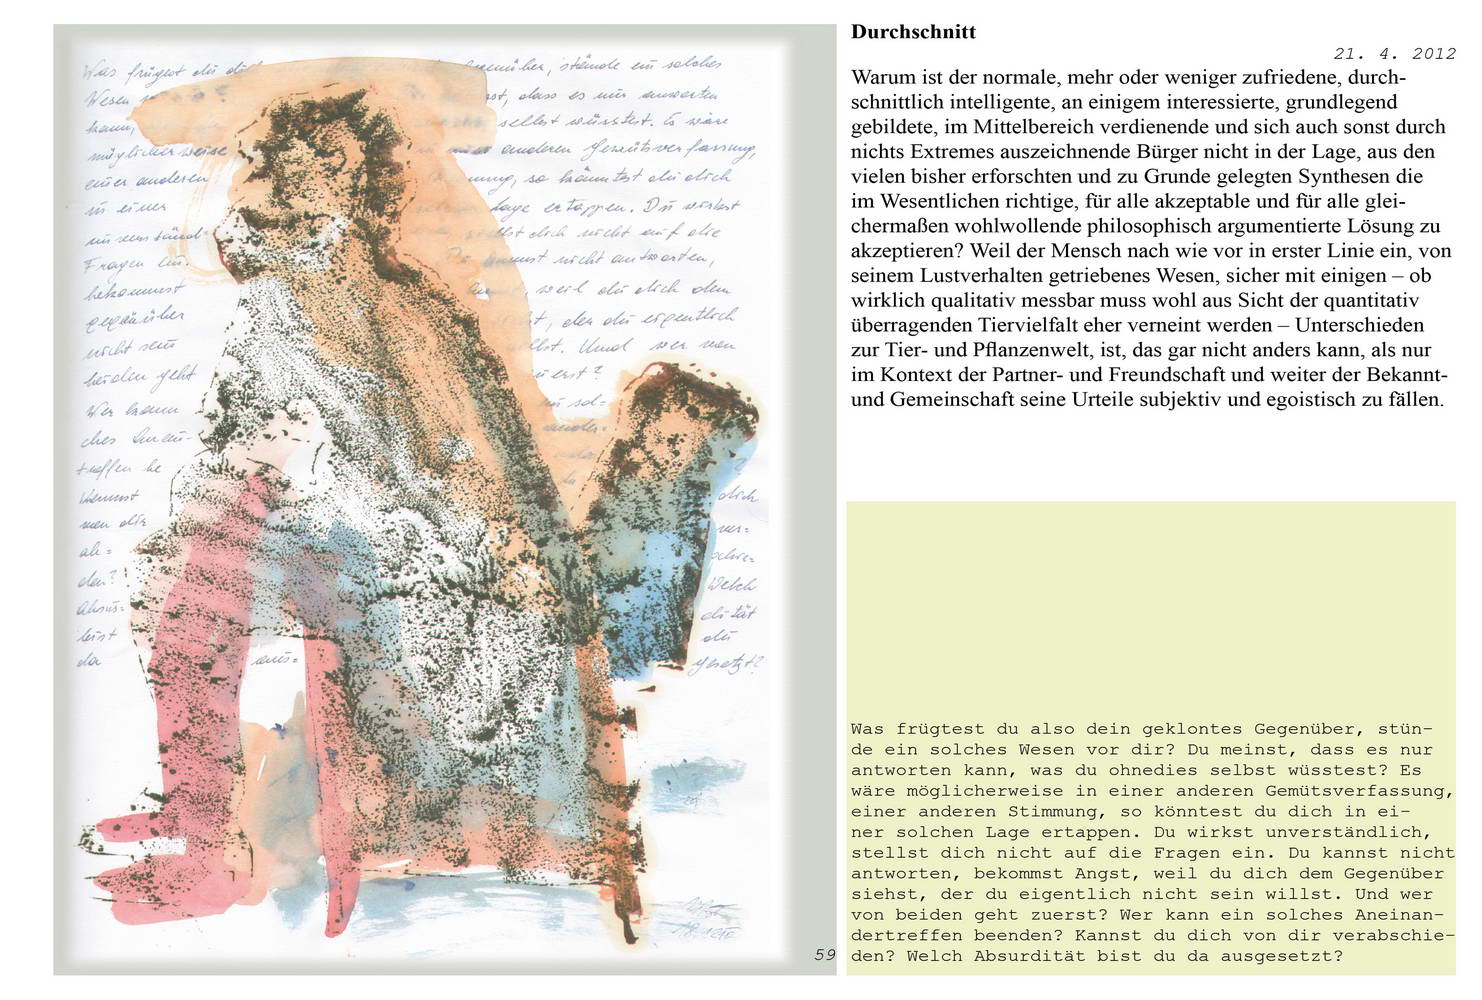 Was frügest du genüber, stände ein solches
Wesen dass es nur antworten
kann, selbst wüsstest. Es wäre
möglicherweise anderen Gemütsverfassung,
einer anderen so könntest du dich
in einer Lage ertappen. Du wirkst
unverständ- dich nicht auf die
Fragen ein. kannst nicht antworten,
bekommst weil du dich dem
gegenüber den du eigentlich
nicht sein Und wer von
beiden geht zuerst?
Wer kann ein sol=
ches Anein-
treffen be
Kannst dich
von dir ver=
ab= schie=
den? Welch
Absur= dität
bist du
da aus= gesetzt?
59
Durchschnitt
21. 4. 2012
Warum ist der normale, mehr oder weniger zufriedene, durch-
schnittlich intelligente, an einigem interessierte, grundlegend
gebildete, im Mittelbereich verdienende und sich auch sonst durch
nichts Extremes auszeichnende Bürger nicht in der Lage, aus den
vielen bisher erforschten und zu Grunde gelegten Synthesen die
im Wesentlichen richtige, für alle akzeptable und für alle glei-
chermaßen wohlwollende philosophisch argumentierte Lösung zu
akzeptieren? Weil der Mensch nach wie vor in erster Linie ein, von
seinem Lustverhalten getriebenes Wesen, sicher mit einigen – ob
wirklich qualitativ messbar muss wohl aus Sicht der quantitativ
überragenden Tiervielfalt eher verneint werden – Unterschieden
zur Tier- und Pflanzenwelt, ist, das gar nicht anders kann, als nur
im Kontext der Partner- und Freundschaft und weiter der Bekannt-
und Gemeinschaft seine Urteile subjektiv und egoistisch zu fällen.
Was frügtest du also dein geklontes Gegenüber, stün-
de ein solches Wesen vor dir? Du meinst, dass es nur
antworten kann, was du ohnedies selbst wüsstest? Es
wäre möglicherweise in einer anderen Gemütsverfassung,
einer anderen Stimmung, so könntest du dich in ei-
ner solchen Lage ertappen. Du wirkst unverständlich,
stellst dich nicht auf die Fragen ein. Du kannst nicht
antworten, bekommst Angst, weil du dich dem Gegenüber
siehst, der du eigentlich nicht sein willst. Und wer
von beiden geht zuerst? Wer kann ein solches Aneinan-
dertreffen beenden? Kannst du dich von dir verabschie-
den? Welch Absurdität bist du da ausgesetzt?